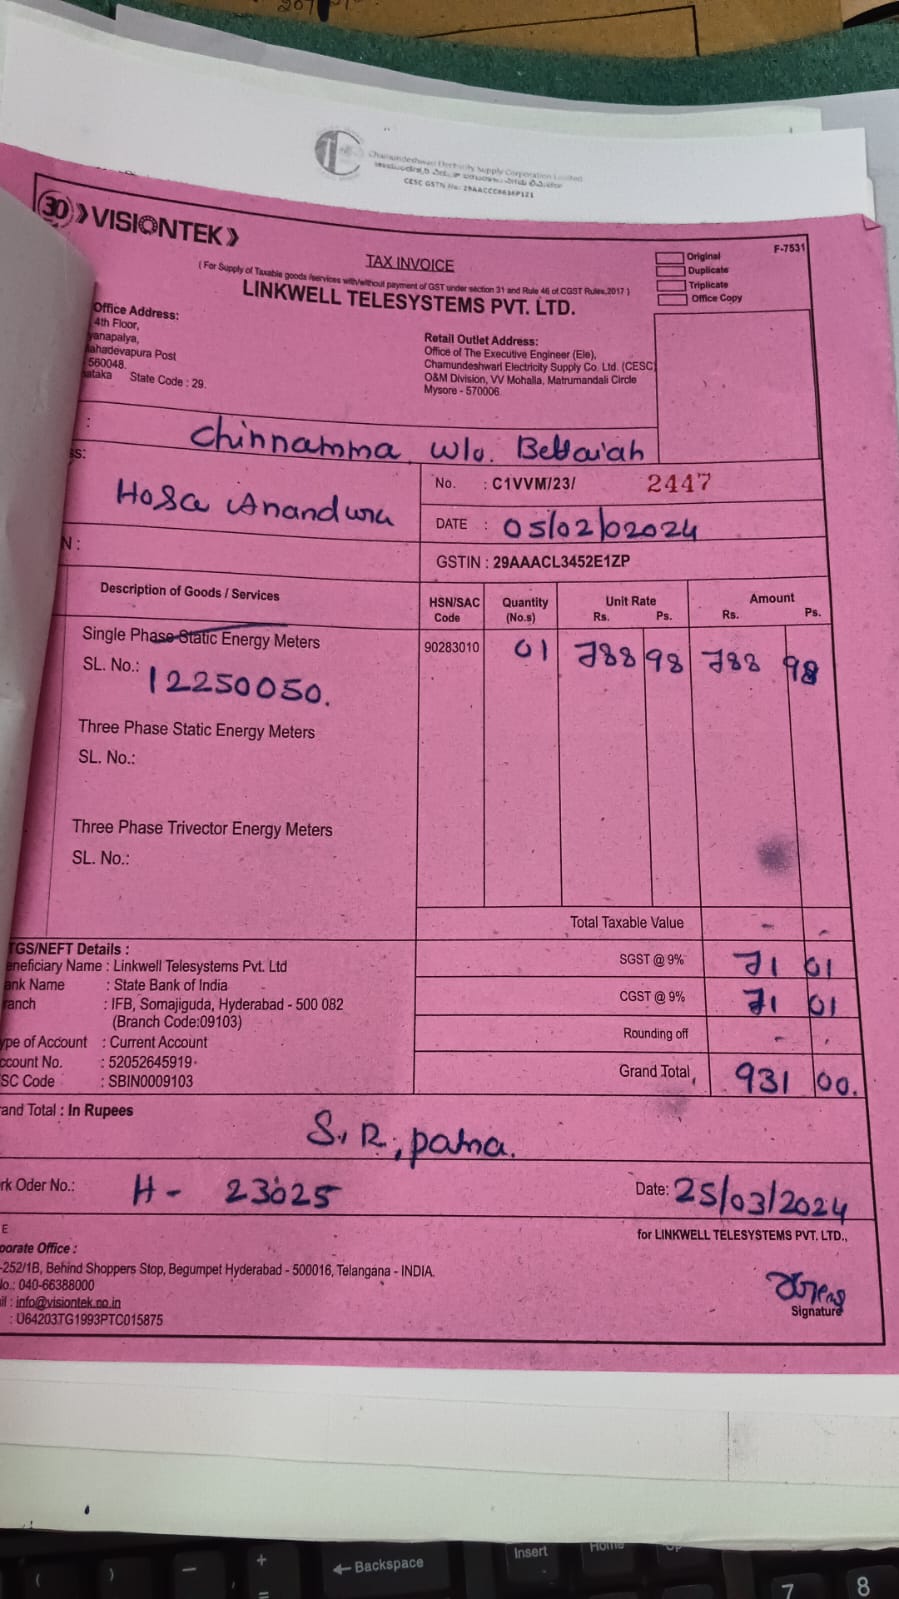 Chamundeshwari Electricity Supply Corporation Limited
CESC GSTN No: 29AACCC6636P1Z1
30 VISIONTEK
F-7531
TAX INVOICE
( For Supply of Taxable goods /services with/without payment of GST under section 31 and Rule 46 of CGST Rules,2017 )
LINKWELL TELESYSTEMS PVT. LTD.
Original
Duplicate
Triplicate
Office Copy
Office Address:
4th Floor,
yanapalya,
ahadevapura Post
560048.
ataka State Code : 29.
Retail Outlet Address:
Office of The Executive Engineer (Ele),
Chamundeshwari Electricity Supply Co. Ltd. (CESC)
O&M Division, VV Mohalla, Matrumandali Circle
Mysore - 570006
: Chinnamma w/o. Bettaiah
ss: Hosa Anandura
No. : C1VVM/23/ 2447
DATE : 05/02/02024
N :
GSTIN : 29AAACL3452E1ZP
Description of Goods / Services
HSN/SAC Code
Quantity (No.s)
Unit Rate
Rs. Ps.
Amount
Rs. Ps.
Single Phase Static Energy Meters
90283010 01 788 98 788 98
SL. No.: 12250050.
Three Phase Static Energy Meters
SL. No.:
Three Phase Trivector Energy Meters
SL. No.:
Total Taxable Value - -
TGS/NEFT Details :
eneficiary Name : Linkwell Telesystems Pvt. Ltd
ank Name : State Bank of India
ranch : IFB, Somajiguda, Hyderabad - 500 082
(Branch Code:09103)
ype of Account : Current Account
ccount No. : 52052645919
SC Code : SBIN0009103
SGST @ 9% 71 01
CGST @ 9% 71 01
Rounding off - .
Grand Total 931 00.
and Total : In Rupees
S.R, patna.
rk Oder No.: H - 23025
Date: 25/03/2024
E
for LINKWELL TELESYSTEMS PVT. LTD.,
porate Office :
-252/1B, Behind Shoppers Stop, Begumpet Hyderabad - 500016, Telangana - INDIA.
No.: 040-66388000
il : info@visiontek.co.in
: U64203TG1993PTC015875
Signature
Insert
Home
Backspace
7
8